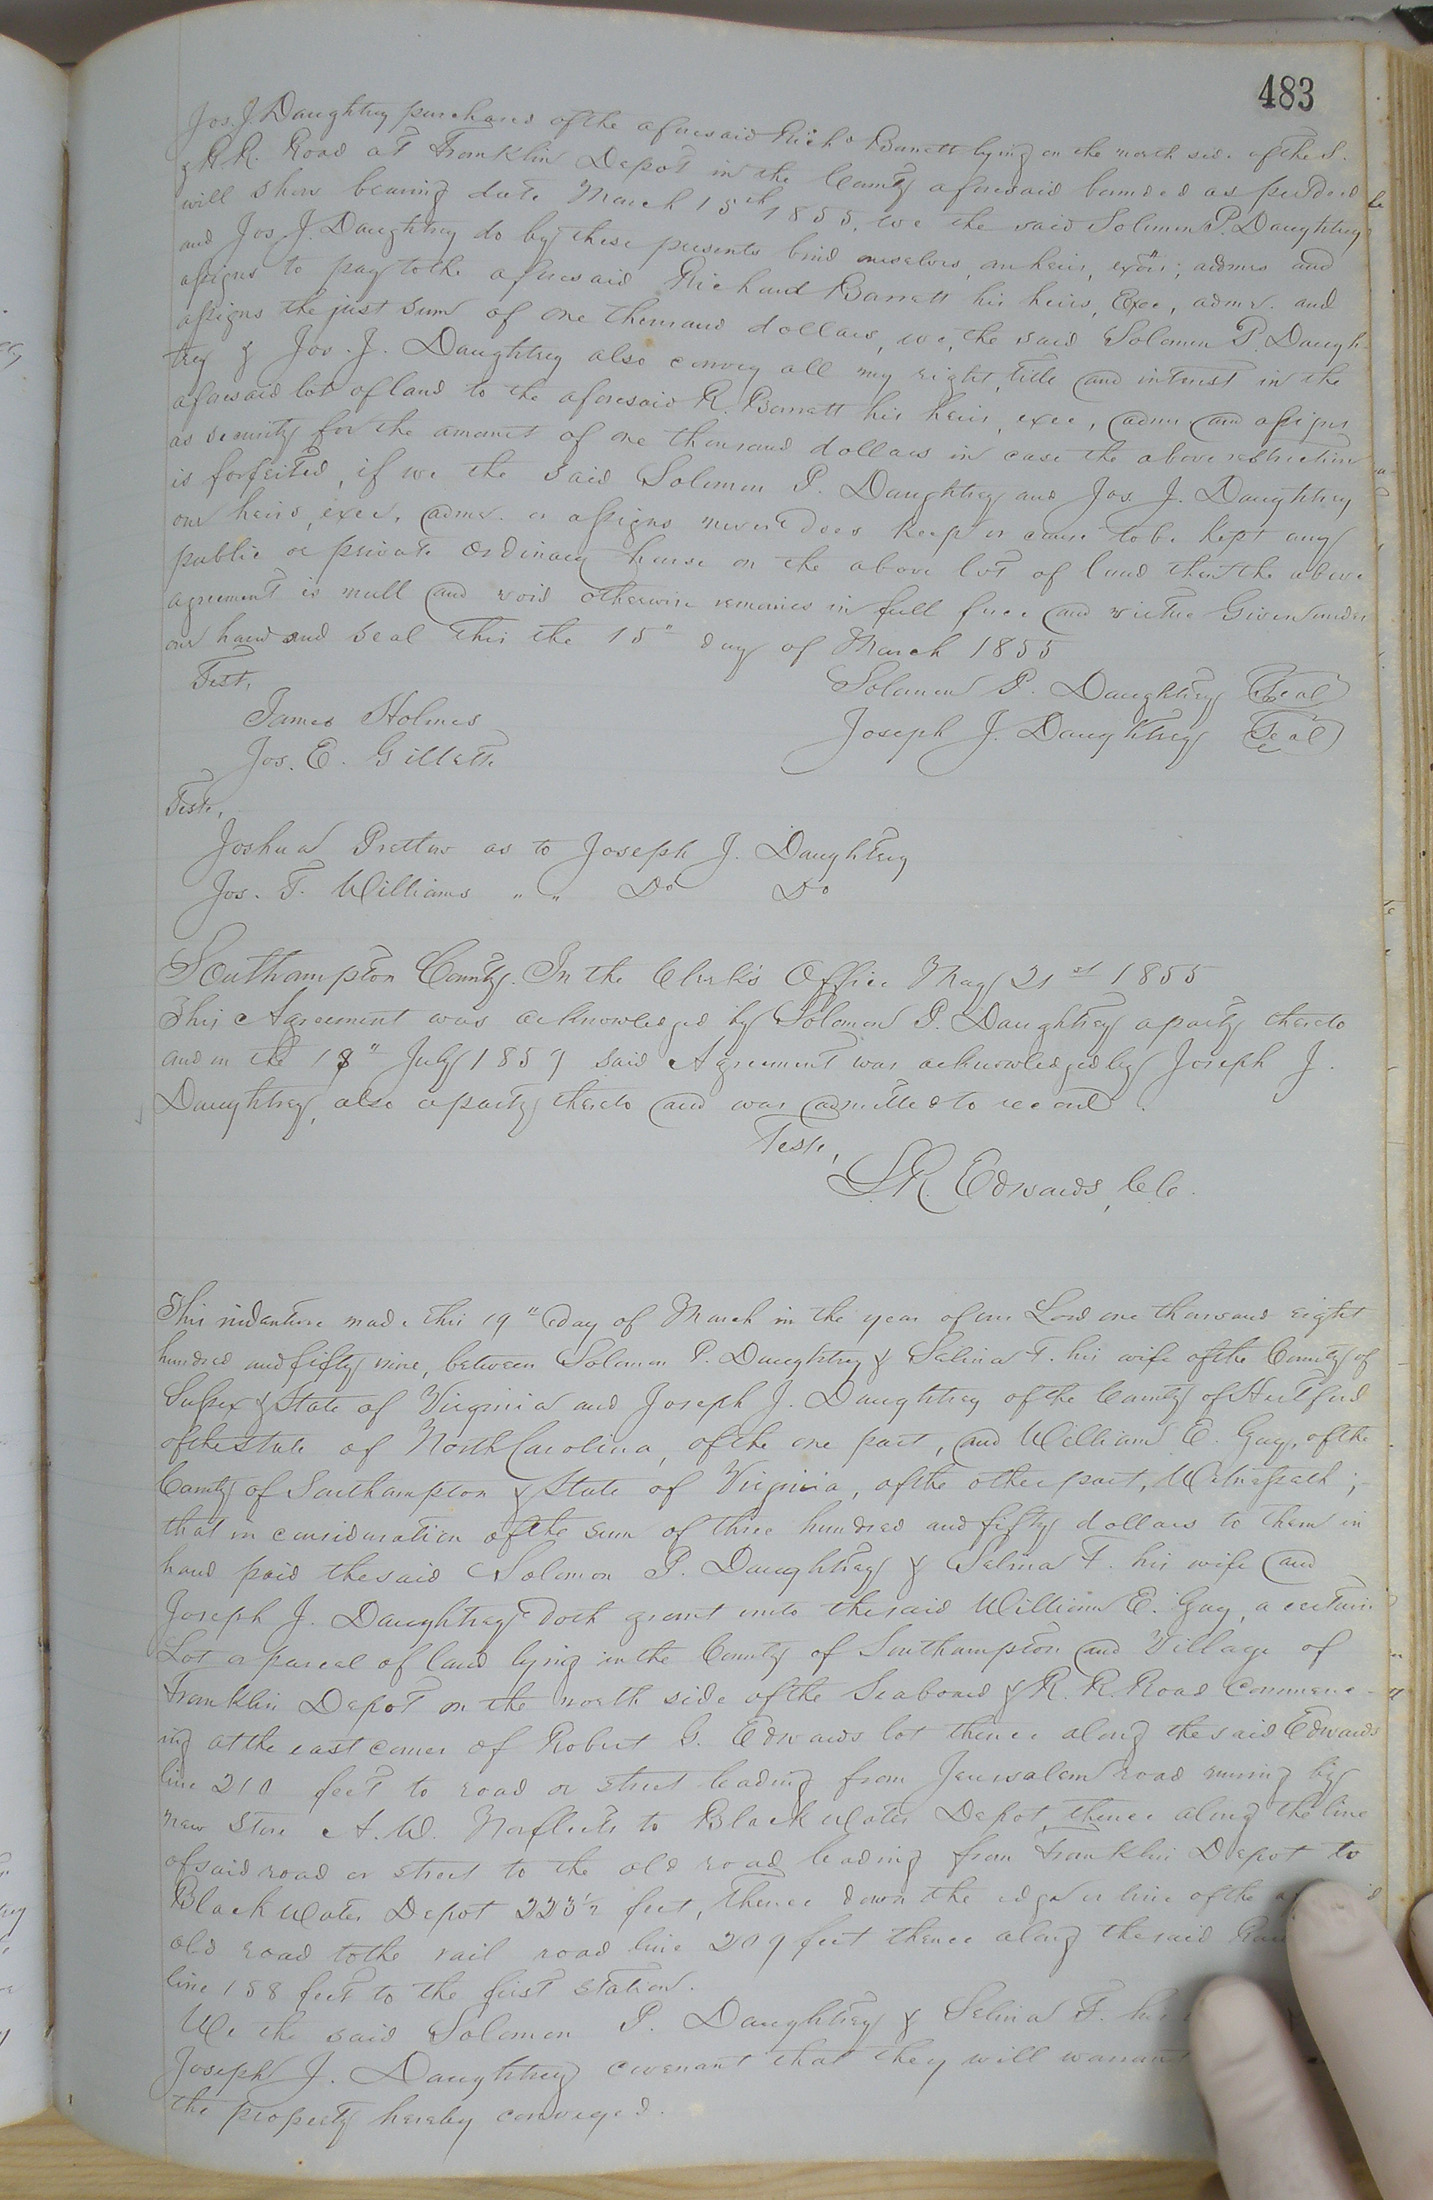 483
Jos. J Daughtrey purchased of the aforesaid Richd Barrett lying on the north side of the S.
& R. R. Road at Franklin Depot in the County aforesaid bounded as per deed
will show bearing date March 15th 1855, we the said Solomon P. Daughtrey
and Jos J. Daughtrey do by these presents bind ourselves, our heirs, exors; admrs and
assigns to pay to the aforesaid Richard Barrett his heirs, Exec, admr. and
assigns the just sum of one thousand dollars, we, the said Solomon P. Daugh-
trey & Jos. J. Daughtrey also convey all my right, title and interest in the
aforesaid lot of land to the aforesaid R. Barrett his heirs, exec, admr and assigns
as security for the amount of one thousand dollars in case the above restriction
is forfeited, if we the said Solomon P. Daughtrey and Jos. J. Daughtrey
our heirs, exec, admr. or assigns never does keep or cause to be kept any
public or private Ordinary house on the above lot of land then the above
agreement is null and void otherwise remains in full force and virtue Given under
our hand and seal this the 15" day of March 1855
Test,
Solomon P. Daughtrey Seal
James Holmes
Joseph J. Daughtrey Seal
Jos. E. Gillette
Teste,
Joshua Pretlow as to Joseph J. Daughtrey
Jos. T. Williams " " Do Do
Southampton County. In the Clerk's Office May 21st 1855
This Agreement was acknowledged by Solomon P. Daughtrey a party thereto
and on the 18" July 1859 said Agreement was acknowledged by Joseph J.
Daughtrey, also a party thereto and was admitted to record.
Teste,
L. R. Edwards, C.C.
This indenture made this 19" day of March in the year of our Lord one thousand eight
hundred and fifty nine, between Solomon P. Daughtrey & Selina F. his wife of the County of
Sussex & State of Virginia and Joseph J. Daughtrey of the County of Hertford
of the State of North Carolina, of the one part, and William E. Gay, of the
County of Southampton & State of Virginia, of the other part, Witnesseth;
that in consideration of the sum of three hundred and fifty dollars to them in
hand paid the said Solomon P. Daughtrey & Selina F. his wife and
Joseph J. Daughtrey doth grant unto the said William E. Gay, a certain
Lot or parcel of land lying in the County of Southampton and Village of
Franklin Depot on the north side of the Seaboard & R. R. Road Commenc-
ing at the east corner of Robert G. Edwards lot thence along the said Edwards
line 210 feet to road or street leading from Jerusalem road running by
new Store A. W. Norfleets to Black water Depot, thence along the line
of said road or street to the old road leading from Franklin Depot to
Black water Depot 223½ feet, thence down the edge or line of the
old road to the rail road line 209 feet thence along the said
line 158 feet to the first station.
We the said Solomon P. Daughtrey & Selina F. his
Joseph J. Daughtrey covenant that they will warrant
the property hereby conveyed.